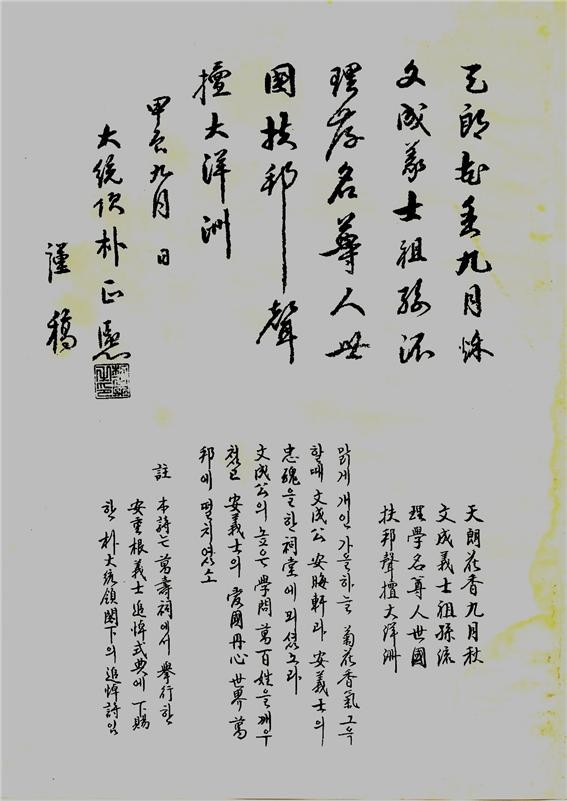 天朗花香九月秋
文成義士祖孫流
理學名尊人世
國扶邦聲
擅大洋洲
甲辰九月 日
大統領 朴正熙
謹稿
天朗花香九月秋
文成義士祖孫流
理學名尊人世國
扶邦聲擅大洋洲
맑게 개인 가을하늘 菊花香氣 그윽
할때 文成公 安晦軒과 安義士의
忠魂을 한 祠堂에 뫼셨노라
文成公의 높은 學問 萬百姓을 깨우
첬고 安義士의 愛國丹心 世界萬
邦에 떨치였소
註 本詩는 萬壽祠에서 擧行한
安重根義士 追悼式典에 下賜
한 朴大統領閣下의 追悼詩임